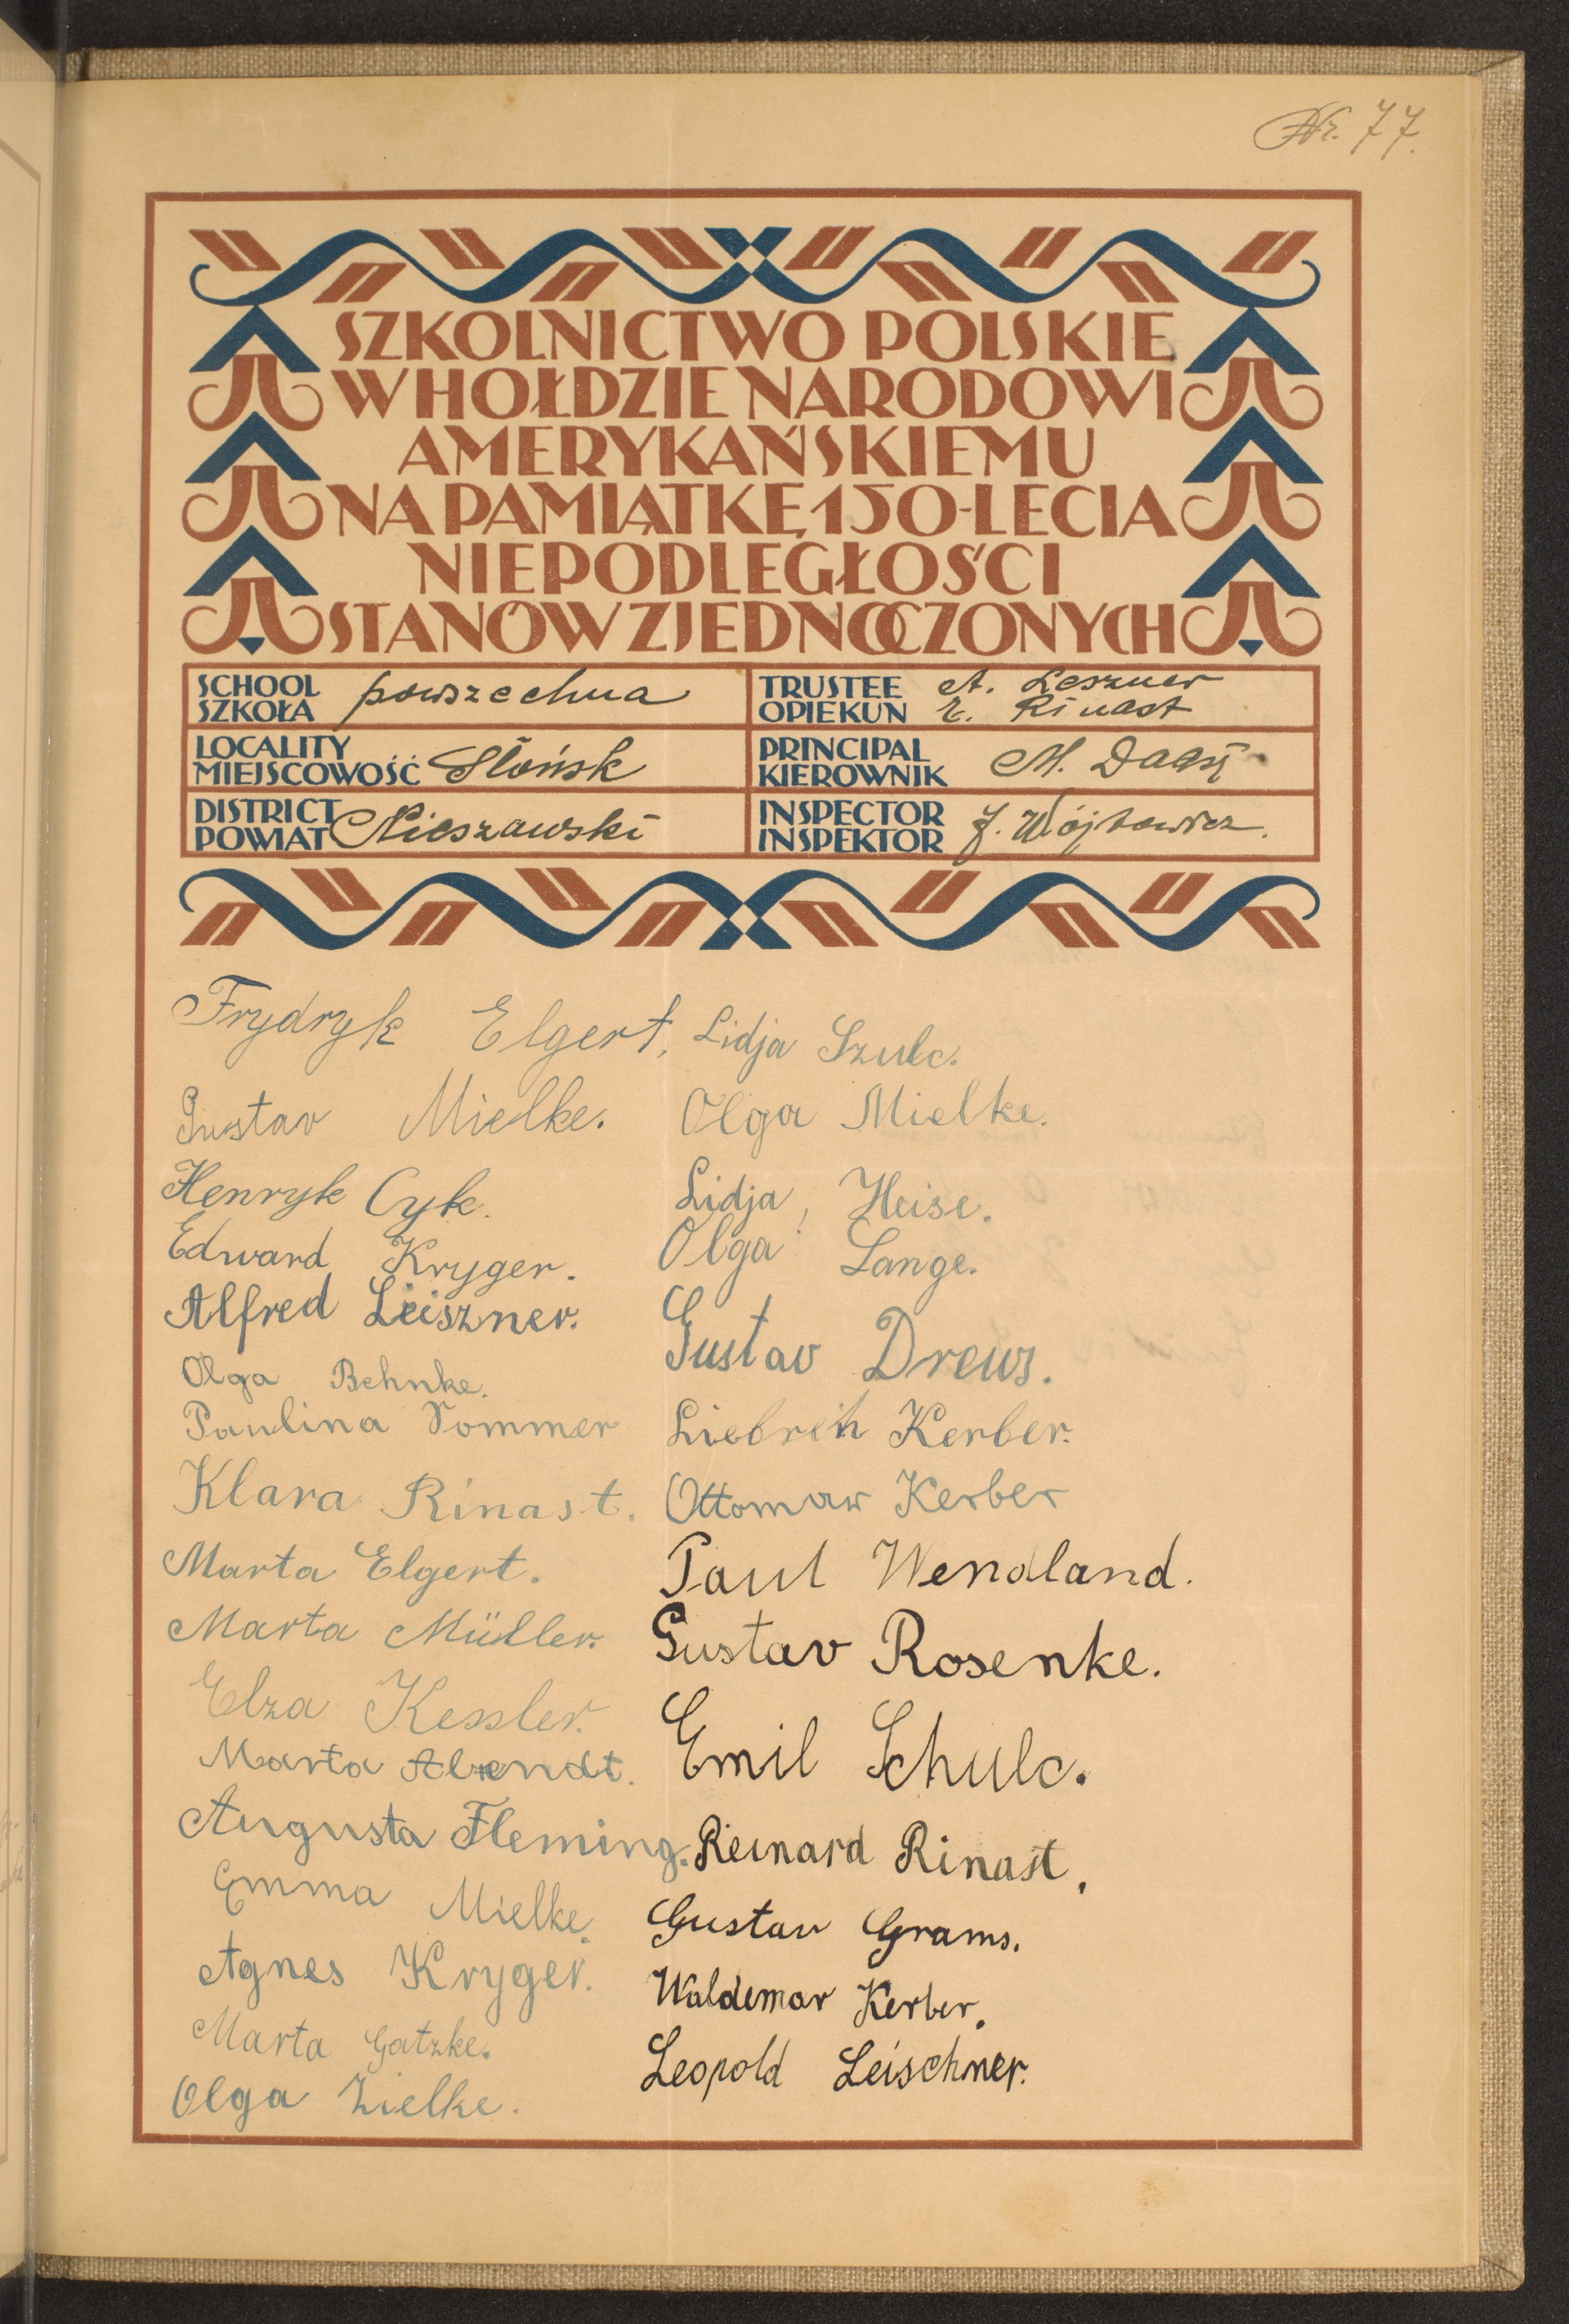 Nr. 77.
SZKOLNICTWO POLSKIE
W HOŁDZIE NARODOWI
AMERYKAŃSKIEMU
NA PAMIĄTKĘ 150-LECIA
NIEPODLEGŁOŚCI
STANÓW ZJEDNOCZONYCH
SCHOOL
SZKOŁA
powszechna
TRUSTEE
OPIEKUN
A. Leszner
E. Rinast
LOCALITY
MIEJSCOWOŚĆ
Słońsk
PRINCIPAL
KIEROWNIK
M.
DISTRICT
POWIAT
Nieszawski
INSPECTOR
INSPEKTOR
J. Wójtowicz.
Frydryk Elgert,
Gustav Mielke.
Henryk Cyk.
Edward Kryger.
Alfred Leiszner.
Olga Behnke.
Paulina Sommer
Klara Rinast.
Marta Elgert.
Marta Müller.
Elza Kessler.
Marta
Augusta Fleming.
Emma Mielke.
Agnes Kryger.
Marta Gatzke.
Olga Zielke.
Lidja Szulc.
Olga Mielke.
Lidja, Heise.
Olga Lange.
Gustav Drews.
Liebreih Kerber.
Ottomar Kerber
Paul Wendland.
Gustav Rosenke.
Emil Schulc.
Reinard Rinast,
Gustav Grams.
Waldemar Kerber.
Leopold Leischner.